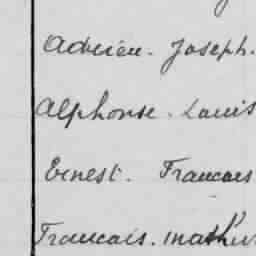 Adrien. Joseph.
Alphonse. Louis
Ernest. Francois
Francois. Mathieu